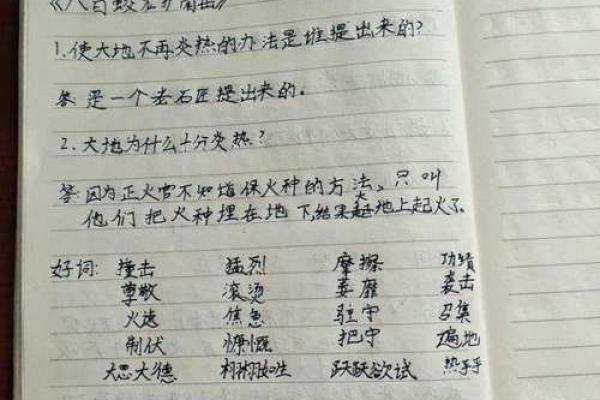 《八百蛟龙护南岳》
1.使大地不再炎热的办法是谁提出来的?
答 是一个老石匠提出来的。
2.大地为什么十分炎热?
答 因为正火官不知道保火种的方法,只叫
他们把火种埋在地下,结果大地上起火了。
好词: 撞击 猛烈 摩擦 功绩
尊敬 滚烫 萎靡 袭击
火速 焦急 驻守 召集
制伏 慷慨 把守 遍地
大恩大德 栩栩如生 跃跃欲试 热乎乎